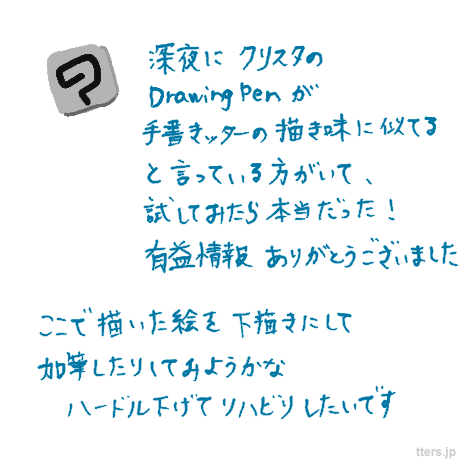 深夜に クリスタの
Drawing Pen が
手書きッターの描き味に似てる
と言っている方がいて、
試してみたら本当だった!
有益情報 ありがとうございました
ここで描いた絵を下描きにして
加筆したりしてみようかな
ハードル下げてリハビリしたいです
tters.jp